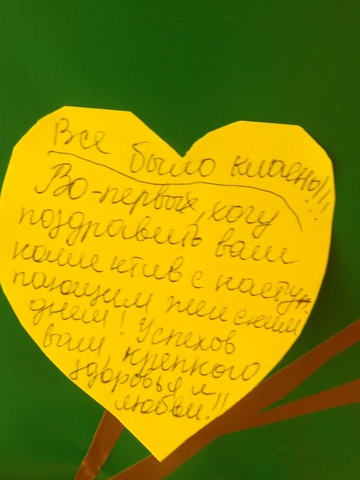 Все было класно!!!
Во-первых, хочу
поздравить ваш
коллектив с насту-
пающим женским
днем! Успехов
вам, крепкого
здоровья и
любви!!!